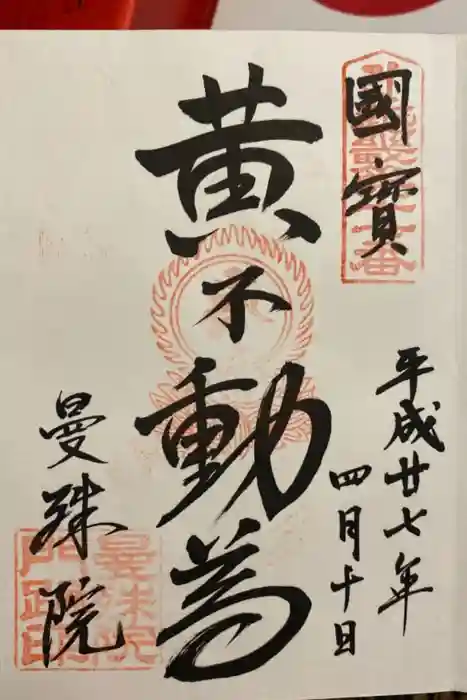 國寳
平成廿七年
四月十日
黄不動尊
曼殊院
曼殊院
門跡印